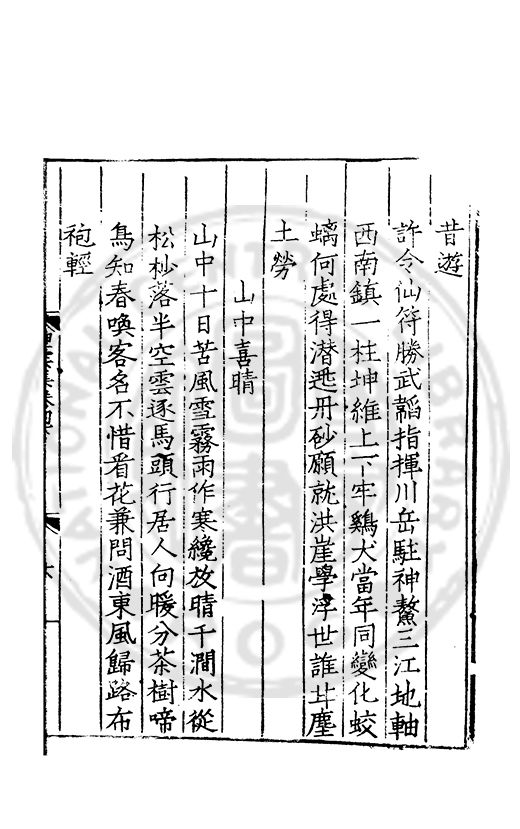 昔遊
許令仙符勝武韜指揮川岳駐神鰲三江地軸
西南鎮一柱坤維上下牢鷄犬當年同變化蛟
螭何處得潜逃丹砂願就洪崖學浮世誰甘塵
土勞
山中喜晴
山中十日苦風雪霧雨作寒纔放晴千澗水從
松杪落半空雲逐馬頭行居人向暖分茶樹啼
鳥知春喚客名不惜看花兼問酒東風歸路布
袍輕